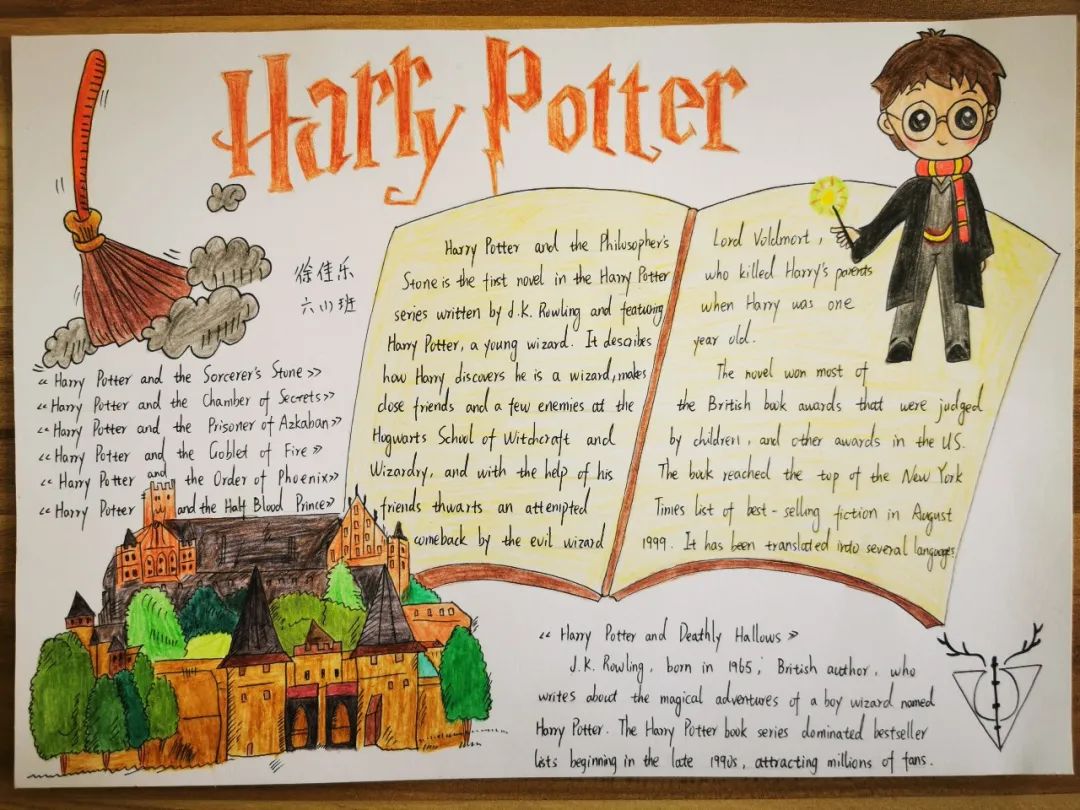 Harry Potter
徐佳乐
六(1)班
« Harry Potter and the Sorcerer's Stone »
« Harry Potter and the Chamber of Secrets»
« Harry Potter and the Prisoner of Azkaban»
« Harry Potter and the Goblet of Fire »
« Harry Potter and the Order of Phoenix»
« Harry Potter and the Half Blood Prince»
Harry Potter and the Philosopher's
Stone is the first novel in the Harry Potter
series written by J.K. Rowling and featuring
Harry Potter, a young wizard. It describes
how Harry discovers he is a wizard, makes
close friends and a few enemies at the
Hogwarts School of Witchcraft and
Wizardry, and with the help of his
friends thwarts an attempted
comeback by the evil wizard
Lord Voldmort,
who killed Harry's parents
when Harry was one
year old.
The novel won most of
the British book awards that were judged
by children, and other awards in the US.
The book reached the top of the New York
Times list of best-selling fiction in August
1999. It has been translated into several languages
« Harry Potter and Deathly Hallows »
J.K. Rowling, born in 1965; British author, who
writes about the magical adventures of a boy wizard named
Harry Potter. The Harry Potter book series dominated bestseller
lists beginning in the late 1990s, attracting millions of fans.